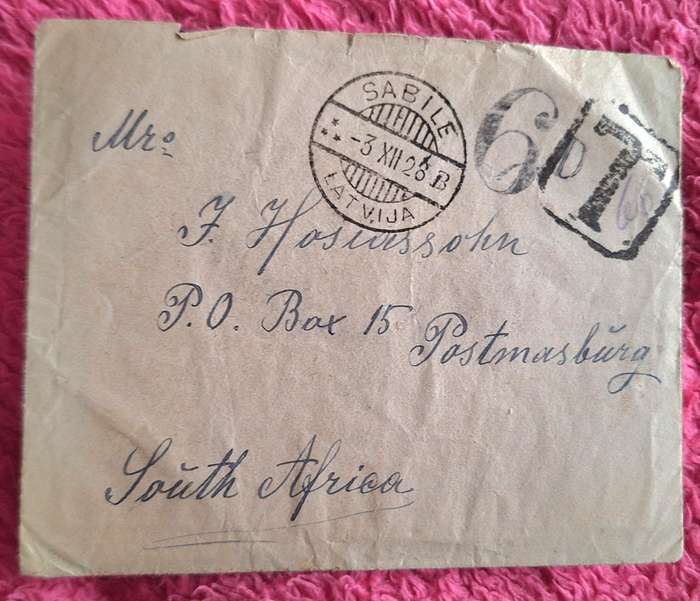 SABILE
-3 XII 28 B
LATVIJA
6D
T
Mro
J. Hosiassohn
P.O. Box 15
Postmasburg
South Africa